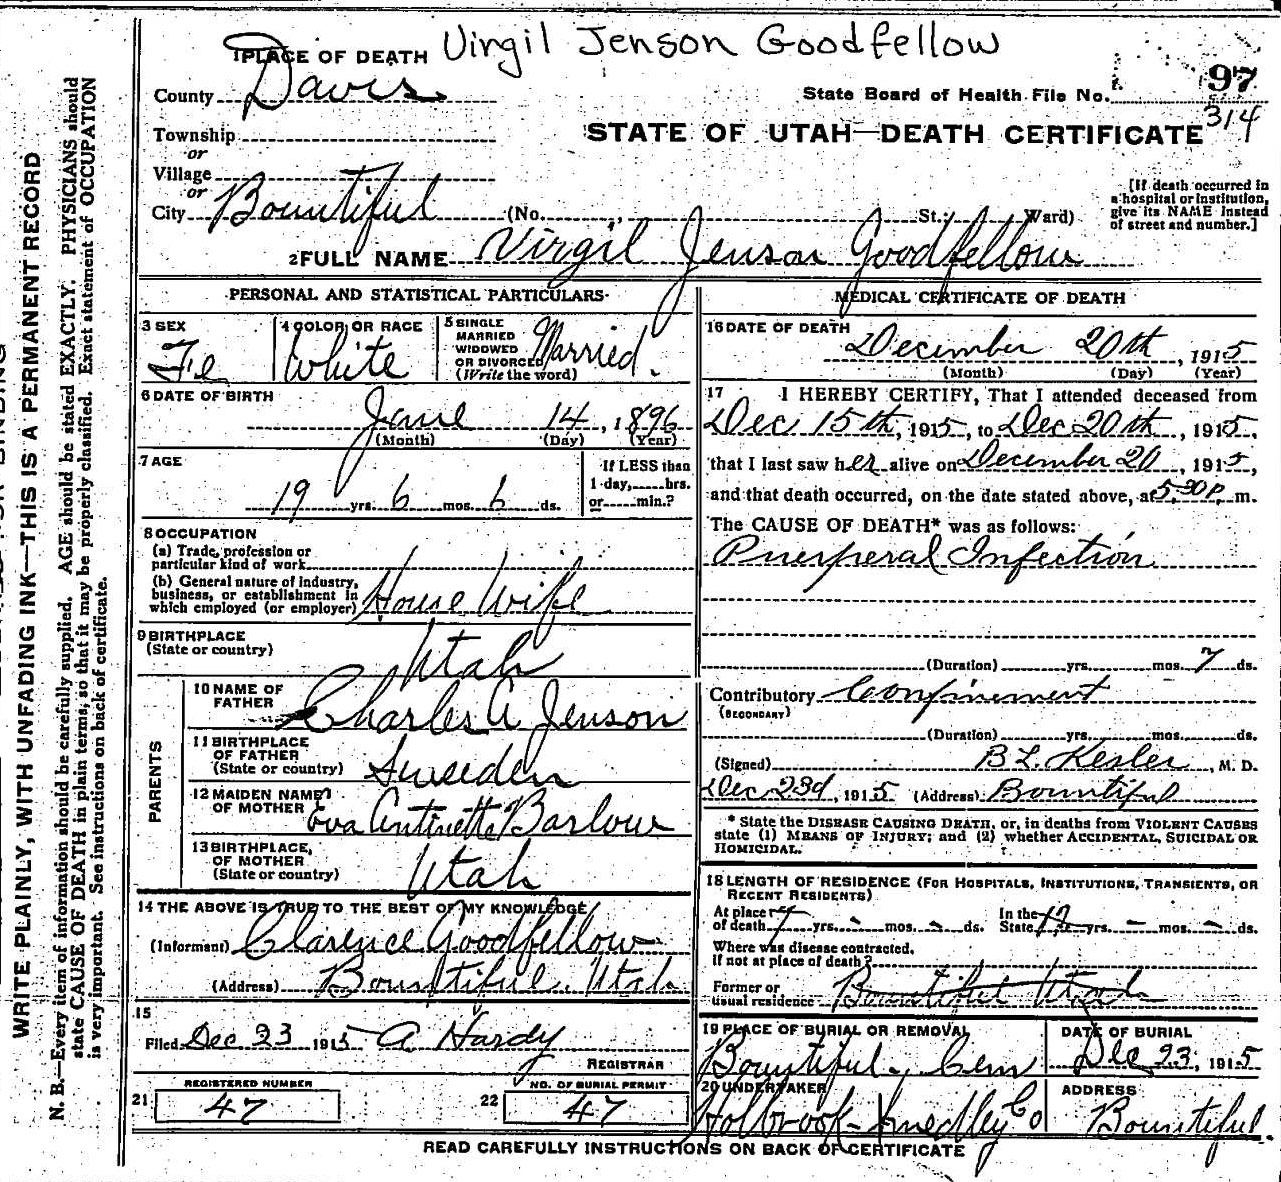 Virgil Jenson Goodfellow
1 PLACE OF DEATH
County Davis
97
State Board of Health File No.
314
Township
or
STATE OF UTAH—DEATH CERTIFICATE
Village
or
City Bountiful (No. , St.; Ward)
[If death occurred in a hospital or institution, give its NAME instead of street and number.]
2 FULL NAME Virgil Jenson Goodfellow
PERSONAL AND STATISTICAL PARTICULARS
3 SEX
Fe
4 COLOR OR RACE
White
5 SINGLE
MARRIED
WIDOWED
OR DIVORCED
(Write the word)
Married.
6 DATE OF BIRTH
June 14, 1896
(Month) (Day) (Year)
7 AGE
19 yrs. 6 mos. 6 ds.
If LESS than
1 day, hrs.
or min.?
8 OCCUPATION
(a) Trade, profession or
particular kind of work
(b) General nature of industry,
business, or establishment in
which employed (or employer) House Wife
9 BIRTHPLACE
(State or country)
Utah
PARENTS
10 NAME OF
FATHER
Charles A Jenson
11 BIRTHPLACE
OF FATHER
(State or country) Sweeden
12 MAIDEN NAME
OF MOTHER Eva Antinette Barlow
13 BIRTHPLACE,
OF MOTHER
(State or country) Utah
14 THE ABOVE IS TRUE TO THE BEST OF MY KNOWLEDGE
(Informant) Clarence Goodfellow
(Address) Bountiful. Utah
15
Filed Dec 23 1915 A Hardy
REGISTRAR
REGISTERED NUMBER
21 47
NO. OF BURIAL PERMIT
22 47
MEDICAL CERTIFICATE OF DEATH
16 DATE OF DEATH
December 20th, 1915
(Month) (Day) (Year)
17 I HEREBY CERTIFY, That I attended deceased from
Dec 15th, 1915, to Dec 20th, 1915,
that I last saw her alive on December 20, 1915,
and that death occurred, on the date stated above, at 5.30 P. m.
The CAUSE OF DEATH* was as follows:
Puerperal Infection
(Duration) yrs. mos. 7 ds.
Contributory Confinement
(SECONDARY)
(Duration) yrs. mos. ds.
(Signed) B L. Kesler, M. D.
Dec 23d, 1915 (Address) Bountiful
* State the DISEASE CAUSING DEATH, or, in deaths from VIOLENT CAUSES
state (1) MEANS OF INJURY; and (2) whether ACCIDENTAL, SUICIDAL OR
HOMICIDAL.
18 LENGTH OF RESIDENCE (FOR HOSPITALS, INSTITUTIONS, TRANSIENTS, OR
RECENT RESIDENTS)
At place
of death yrs. - mos. - ds.
In the
State yrs. - mos. - ds.
Where was disease contracted,
if not at place of death?
Former or
usual residence Bountiful Utah
19 PLACE OF BURIAL OR REMOVAL
Bountiful. Cem
DATE OF BURIAL
Dec 23, 1915
20 UNDERTAKER
Holbrook - Smedley Co
ADDRESS
Bountiful.
READ CAREFULLY INSTRUCTIONS ON BACK OF CERTIFICATE
WRITE PLAINLY, WITH UNFADING INK—THIS IS A PERMANENT RECORD
N. B.—Every item of information should be carefully supplied. AGE should be stated EXACTLY. PHYSICIANS should
state CAUSE OF DEATH in plain terms, so that it may be properly classified. Exact statement of OCCUPATION
is very important. See instructions on back of certificate.